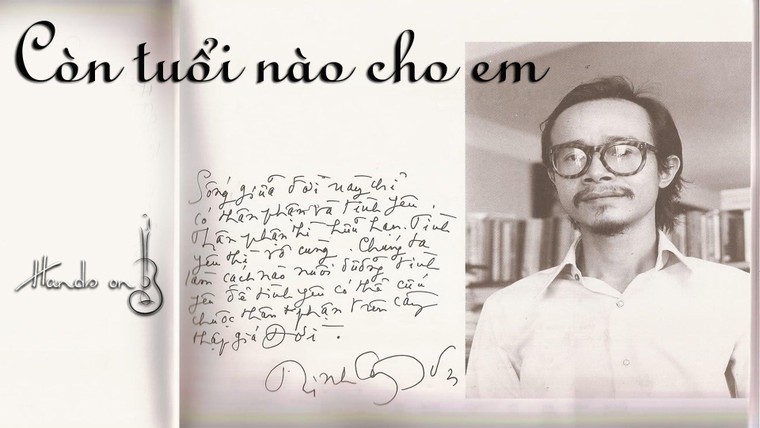 Còn tuổi nào cho em
Sống giữa đời này chỉ
có thân phận và tình yêu.
Thân phận thì hữu hạn. Tình
yêu thì vô cùng. Chúng ta
làm cách nào nuôi dưỡng tình
yêu để tình yêu có thể cứu
chuộc thân phận trên cây
thập giá Đời.
Hands on
Trịnh Công Sơn